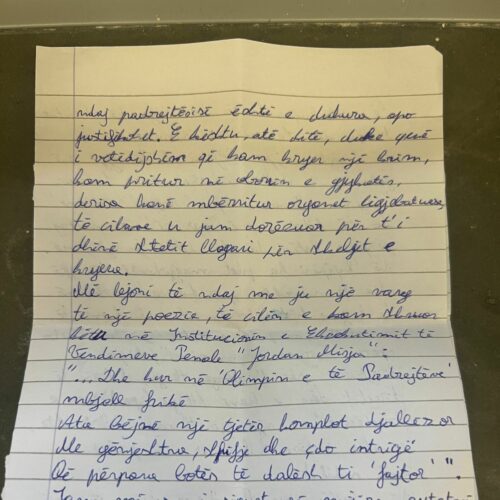 ndaj padrejtësisë është e dukura, apo
justifikohet. E kështu, atë ditë, duke qenë
i vetëdijshëm që kam kryer një krim,
kam pritur në oborrin e gjykatës,
derisa kanë mbërritur organet ligjzbatuese,
të cilave u jam dorëzuar për t'i
dhënë shtetit llogari për shkeljet e
kryera.
Më lejoni të ndaj me ju një varg
të një poezie, të cilën e kam shkruar
këtu në Institucionin e Ekzekutimit të
Vendimeve Penale "Jordan Misja":
"...Dhe kur në 'Olimpin e të Padrejtëve'
mbjell frikë
Ata bëjmë një tjetër komplot djallëzor
Me gënjeshtra, shpifje dhe çdo intrigë
Që përpara botës të dalësh ti 'fajtor'".